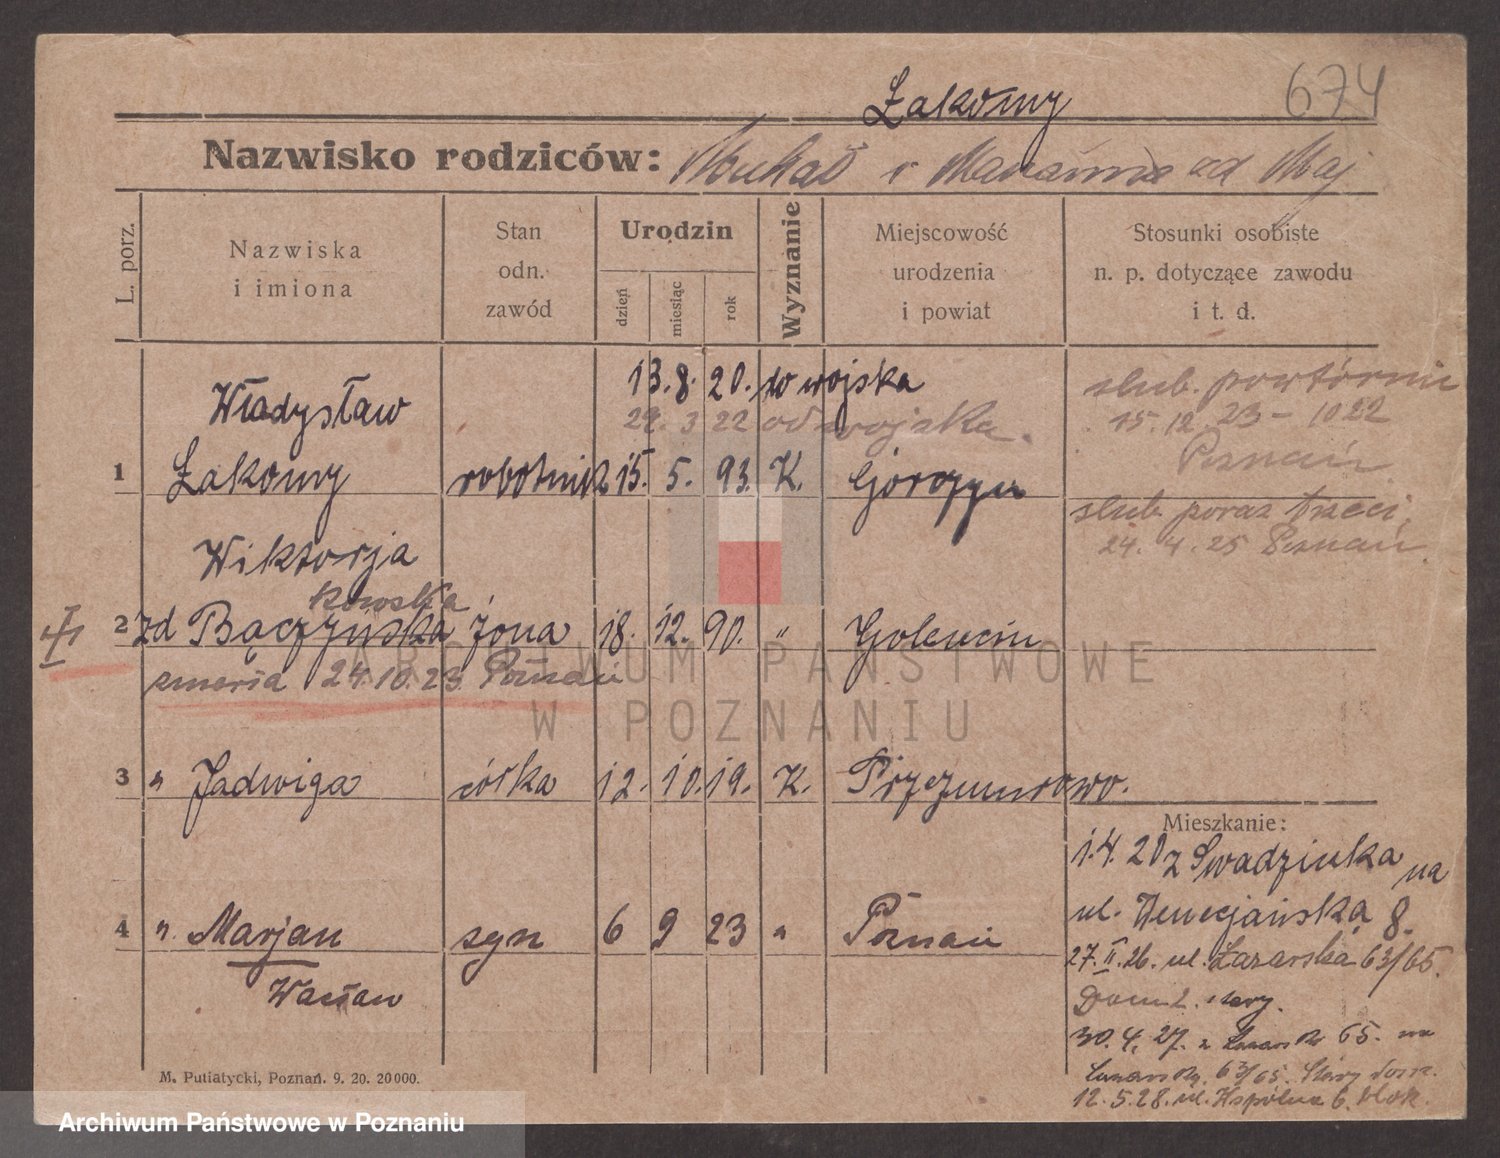 Łakomy
674
Nazwisko rodziców: Michał i Marianna zd Maj
L. porz.
Nazwiska
i imiona
Stan
odn.
zawód
Urodzin
dzień
miesiąc
rok
Wyznanie
Miejscowość
urodzenia
i powiat
Stosunki osobiste
n. p. dotyczące zawodu
i t. d.
13. 8. 20. do wojska
29. 3 22 od wojska.
ślub. powtórnie
15. 12. 23 - 1022
Poznań
Władysław
1 Łakomy robotnik 15. 5. 93. K.
ślub poraz trzeci
24. 4. 25 Poznań
Wiktorja
kowska
2 zd Bączyńska żona 18. 12. 90. " Golencin
zmarła 24.10.23. Poznań
3 " Jadwiga córka 12. 10. 19. K. Przezmirowo.
Mieszkanie:
1.4. 20 z Swadzinka na
4 ". Marjan syn 6 9 23 " Poznań
ul. Wenecjańska 8.
27. II. 26. ul. Łazarska 63/65.
Wacław
Dom 2. stary.
30. 4. 27. z Łazarsk 65. na
Łazarską 63/65. Stary dom.
12. 5. 28. ul. Wspólna 6. blok.
M. Putiatycki, Poznań. 9. 20. 20000.
ARCHIWUM PAŃSTWOWE
W POZNANIU
Archiwum Państwowe w Poznaniu